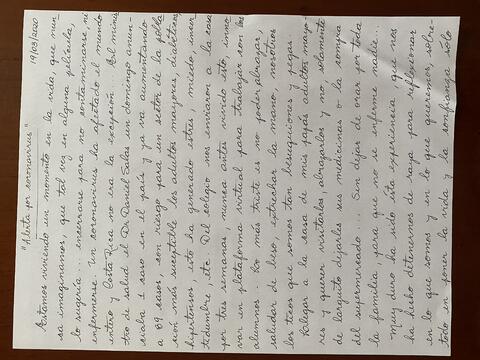 19/03/2020
"Alerta por coronavirus"
Estamos viviendo un momento en la vida, que nun-
ca imaginamos, que tal vez en alguna película,
lo sugería... encerrarse para no contaminarse, ni
enfermarse. Un coronavirus ha afectado el mundo
entero y Costa Rica no era la excepción. El minis
tro de salud el Dr Daniel Salas un domingo anun-
ciaba 1 caso en el país y ya va aumentando
a 69 casos con riesgo para un sector de la pobla
ción más suceptible los adultos mayores, diabéticos,
hipertensos, esto ha generado estrés, miedo, incer
tidumbre, etc. Del colegio nos enviaron a la casa
por tres semanas, nunca antes vivido esto, inno
var en plataforma virtual para trabajar con los
alumnos. Lo más triste es no poder abrazar,
saludar de beso, estrechar la mano, nosotros
los ticos que somos tan besuquiones y pegas.
Llegar a la casa de mis papás adultos mayo-
res y querer visitarlos, abrazarlos y no, solamente
de larguito dejarles sus medicinas o la compra
del supermercado... Sin dejar de orar por toda
la familia para que no se enferme nadie...
Muy duro ha sido esta experiencia, que nos
ha hecho detenernos de raya para reflexionar
en lo que somos y en lo que queremos, sobre-
todo en poner la vida y la confianza solo